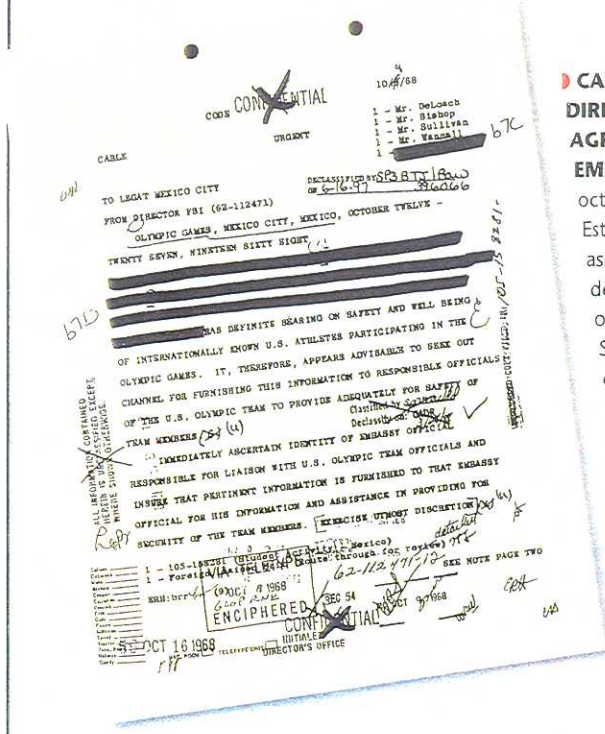 10/8/68
CODE CONFIDENTIAL
URGENT
1 - Mr. DeLoach
1 - Mr. Bishop
1 - Mr. Sullivan
1 - Mr. Wannall
1 -
b7C
CABLE
TO LEGAT MEXICO CITY
FROM DIRECTOR FBI (62-112471)
DECLASSIFIED BY SP3 BTJ
ON 6-16-97
OLYMPIC GAMES, MEXICO CITY, MEXICO, OCTOBER TWELVE -
TWENTY SEVEN, NINETEEN SIXTY EIGHT
b7D
HAS DEFINITE BEARING ON SAFETY AND WELL BEING
OF INTERNATIONALLY KNOWN U.S. ATHLETES PARTICIPATING IN THE
OLYMPIC GAMES. IT, THEREFORE, APPEARS ADVISABLE TO SEEK OUT
CHANNEL FOR FURNISHING THIS INFORMATION TO RESPONSIBLE OFFICIALS
OF THE U.S. OLYMPIC TEAM TO PROVIDE ADEQUATELY FOR SAFETY OF
TEAM MEMBERS (u)
Classified by
Declassify on: OADR
IMMEDIATELY ASCERTAIN IDENTITY OF EMBASSY OFFICIAL
RESPONSIBLE FOR LIAISON WITH U.S. OLYMPIC TEAM OFFICIALS AND
INSURE THAT PERTINENT INFORMATION IS FURNISHED TO THAT EMBASSY
OFFICIAL FOR HIS INFORMATION AND ASSISTANCE IN PROVIDING FOR
SECURITY OF THE TEAM MEMBERS. [EXERCISE UTMOST DISCRETION] (u)
ALL INFORMATION CONTAINED
HEREIN IS UNCLASSIFIED EXCEPT
WHERE SHOWN OTHERWISE.
1 - 105-158281 (Student Activity, Mexico)
1 - Foreign Liaison (Route through for review)
detached
(9)
VIA TELETYPE
OCT 8 1968
ENCIPHERED
62-112471-12
SEE NOTE PAGE TWO
REC 54
OCT 1968
CONFIDENTIAL
OCT 16 1968
TELETYPE UNIT
INITIALED
DIRECTOR'S OFFICE
CA
DIRE
AGE
EM
oct
Est
as
de
o
S